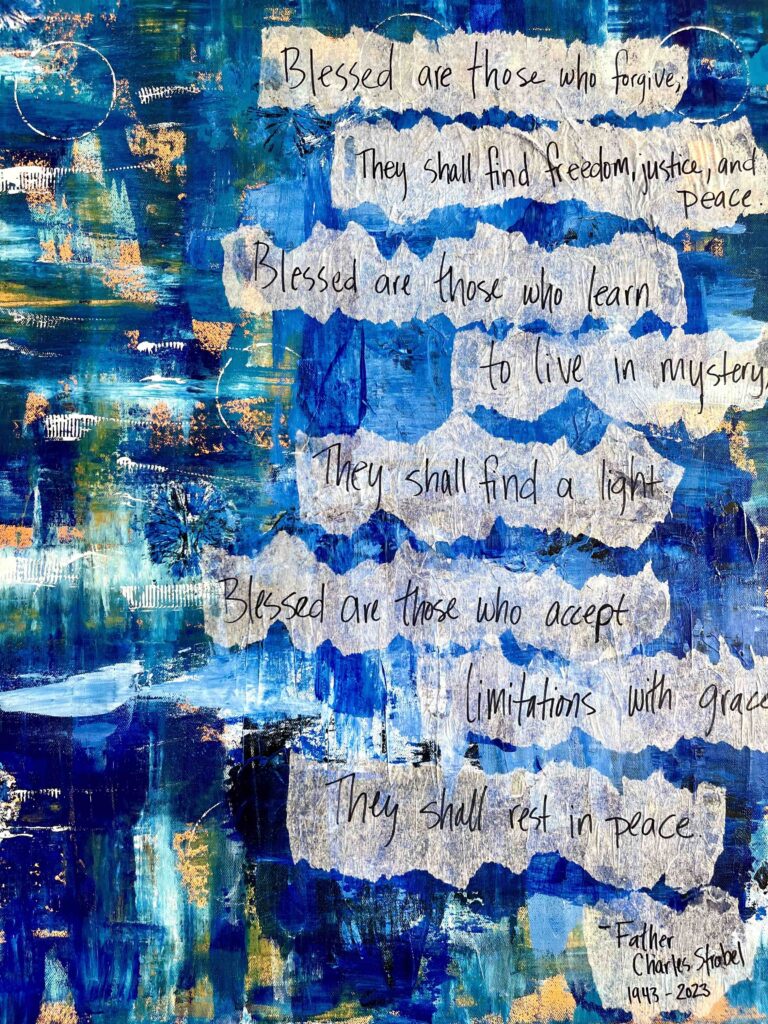 Blessed are those who forgive;
They shall find freedom, justice, and
peace.
Blessed are those who learn
to live in mystery,
They shall find a light.
Blessed are those who accept
limitations with grace
They shall rest in peace
- Father
Charles Strobel
1943 - 2023